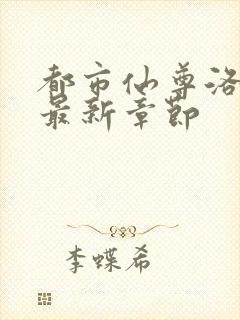 都市仙尊洛
最新章节
李蝶希